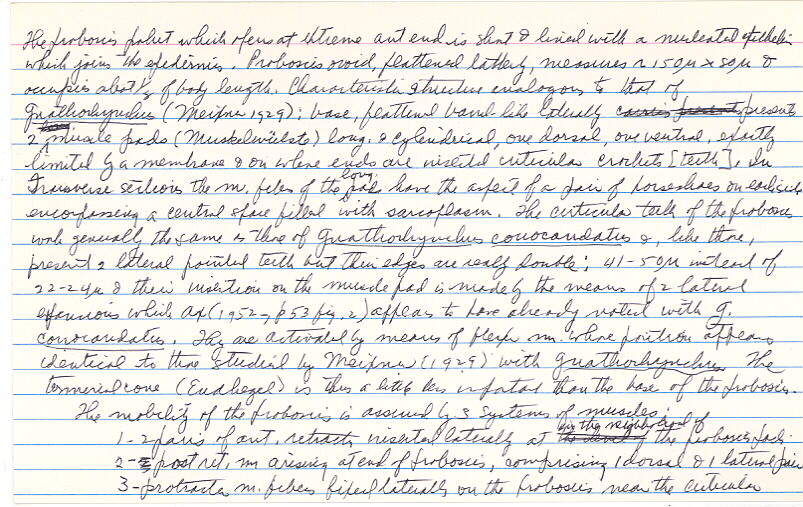 The proboscis pocket which opens at extreme ant end is short & lined with a nucleated epithelium
which joins the epidermis. Proboscis ovoid, flattened laterally, measures ~ 150µ x 80µ &
occupies about 1/5 of body length. Characteristic structure analogous to that of
Gnathorhynchus (Meixner 1929); base, flattened band-like laterally presents
2 muscle pads (Muskelwülste) long & cylindrical, one dorsal, one ventral, exactly
limited by a membrane & on whose ends are inserted cuticular crochets [teeth]. In
Transverse sections the m. fibers of the long. pads have the aspect of a pair of horseshoes on each side
encompassing a central space filled with sarcoplasm. The cuticular teeth of the proboscis
work generally the same as those of Gnathorhynchus conocaudatus &, like those,
present 2 lateral pointed teeth but their edges are really double; 41-50µ instead of
22-24µ & their insertion on the muscle pad is made by the means of 2 lateral
expansions which Ax (1952, p53 fig. 2) appears to have already noted with G.
conocaudatus. They are activated by means of flexor mm. whose position appears
identical to those studied by Meixner (1929) with Gnathorhynchus. The
terminal cone (Endkegel) is thus a little less important than the base of the proboscis.
The mobility of the proboscis is assured by 3 systems of muscles:
1- 2 pairs of ant. retracts inserted laterally at in the neighborhood of the proboscis pads.
2- post ret. m arising at end of proboscis, comprising 1 dorsal & 1 lateral pair
3- protractor m. fibers fixed laterally on the proboscis near the cuticular